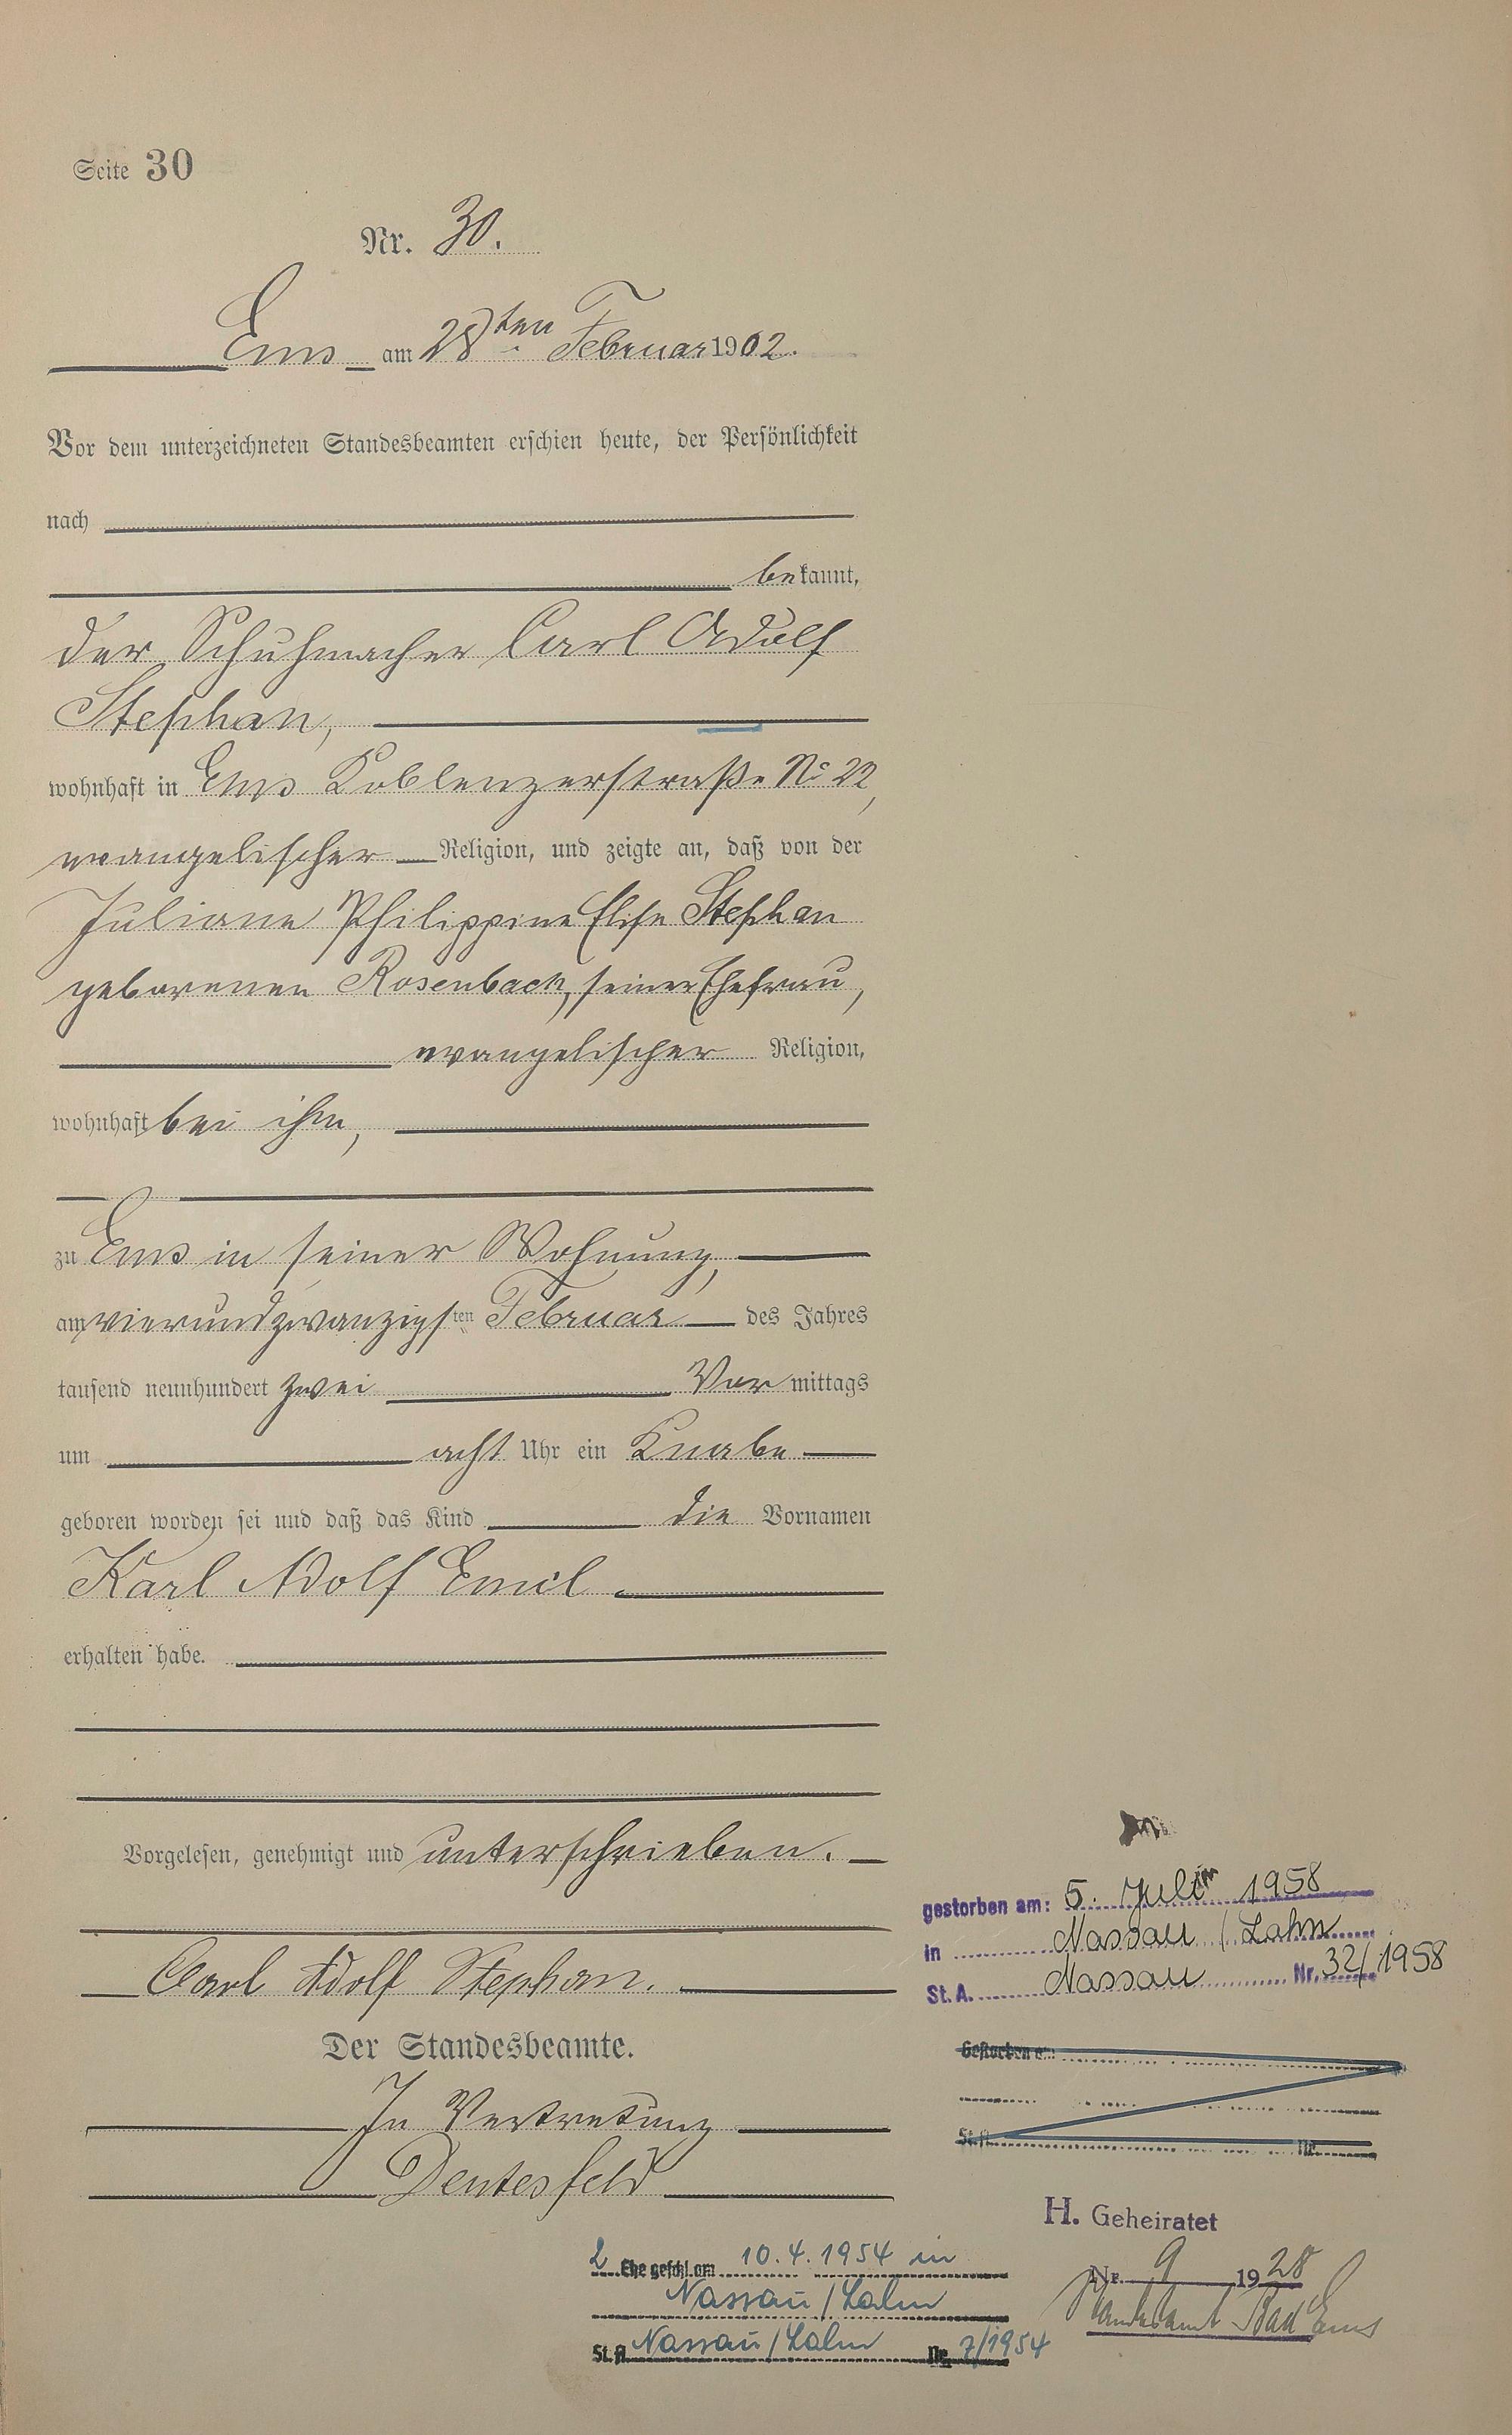 Seite 30
Nr. 30.
Ems am 28ten Februar 1902.
Vor dem unterzeichneten Standesbeamten erschien heute, der Persönlichkeit
nach
bekannt,
der Schuhmacher Carl Adolf
Stephan,
wohnhaft in Ems Koblenzerstraße No 22,
evangelischer Religion, und zeigte an, daß von der
Juliane Philippine Elise Stephan
geborenen Rosenbach, seiner Ehefrau,
evangelischer Religion,
wohnhaft bei ihm,
zu Ems in seiner Wohnung,
am vierundzwanzigsten Februar des Jahres
tausend neunhundert zwei Vormittags
um acht Uhr ein Knabe
geboren worden sei und daß das Kind die Vornamen
Karl Adolf Emil
erhalten habe.
Vorgelesen, genehmigt und unterschrieben.
Carl Adolf Stephan.
Der Standesbeamte.
In Vertretung
Dentesfeld
gestorben am: 5. Juli 1958
in Nassau / Lahn
St. A. Nassau Nr. 32/1958
Gestorben am
St. A. Nr.
H. Geheiratet
Nr. 9 1928
Standesamt Bad Ems
2. Ehe geschl. am 10.4.1954 in
Nassau / Lahn
St. A. Nassau / Lahn Nr. 7/1954